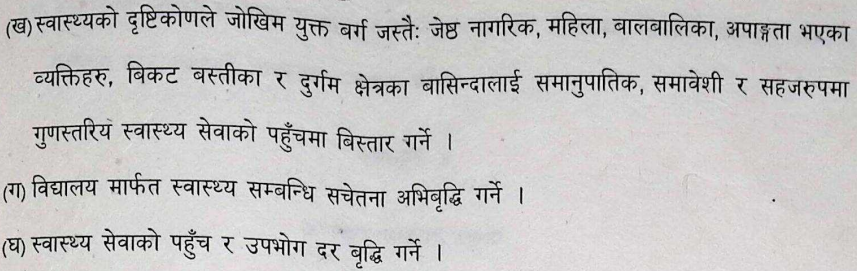 (ख) स्वास्थ्यको दृष्टिकोणले जोखिम युक्त बर्ग जस्तैः जेष्ठ नागरिक, महिला, वालवालिका, अपाङ्गता भएका
व्यक्तिहरु, बिकट वस्तीका र दुर्गम क्षेत्रका बासिन्दालाई समानुपातिक, समावेशी र सहजरुपमा
गुणस्तरिय स्वास्थ्य सेवाको पहुँचमा बिस्तार गर्ने ।
(ग) विद्यालय मार्फत स्वास्थ्य सम्बन्धि सचेतना अभिबृद्धि गर्ने ।
(घ) स्वास्थ्य सेवाको पहुँच र उपभोग दर बृद्धि गर्ने ।